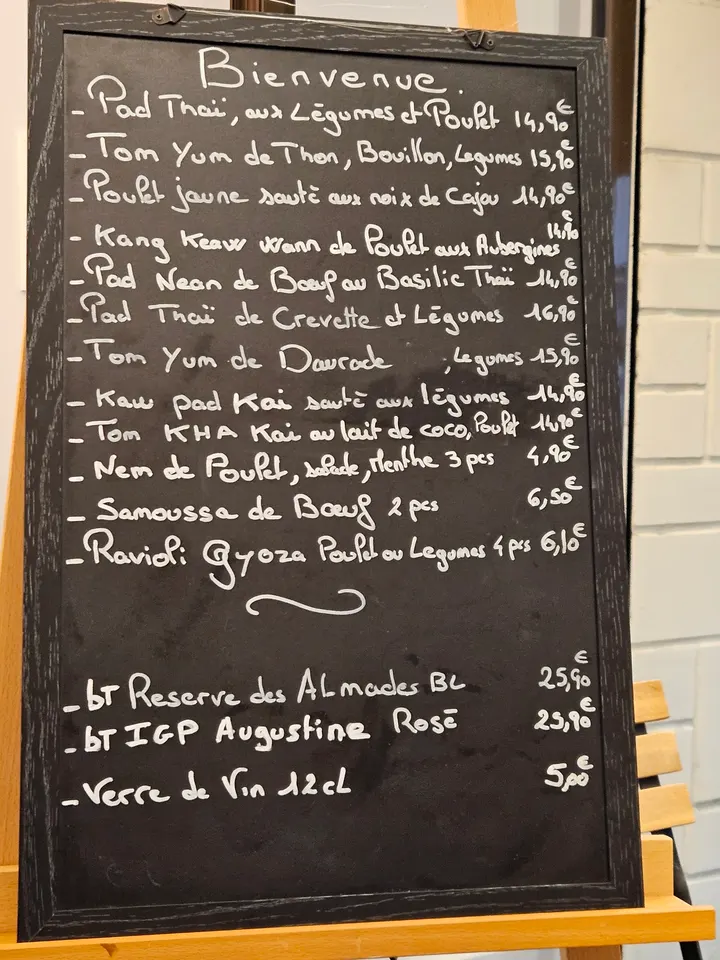 Bienvenue.
- Pad Thaï, aux Légumes et Poulet 14,90€
- Tom Yum de Thon, Bouillon, Legumes 15,90€
- Poulet jaune sauté aux noix de Cajou 14,90€
- Kang Keaw wann de Poulet aux Aubergines 14,90€
- Pad Nean de Bœuf au Basilic Thaï 14,90€
- Pad Thaï de Crevette et Légumes 16,90€
- Tom Yum de Daurade , Legumes 15,90€
- Kaw pad Kai sauté aux légumes 14,90€
- Tom KHA Kai au lait de coco, Poulet 14,90€
- Nem de Poulet, salade, Menthe 3 pcs 4,90€
- Samoussa de Bœuf 2 pcs 6,50€
- Ravioli Gyoza Poulet ou Legumes 4 pcs 6,10€
- bT Reserve des ALmades BL 25,90€
- bT IGP Augustine Rosé 25,90€
- Verre de Vin 12cL 5,00€